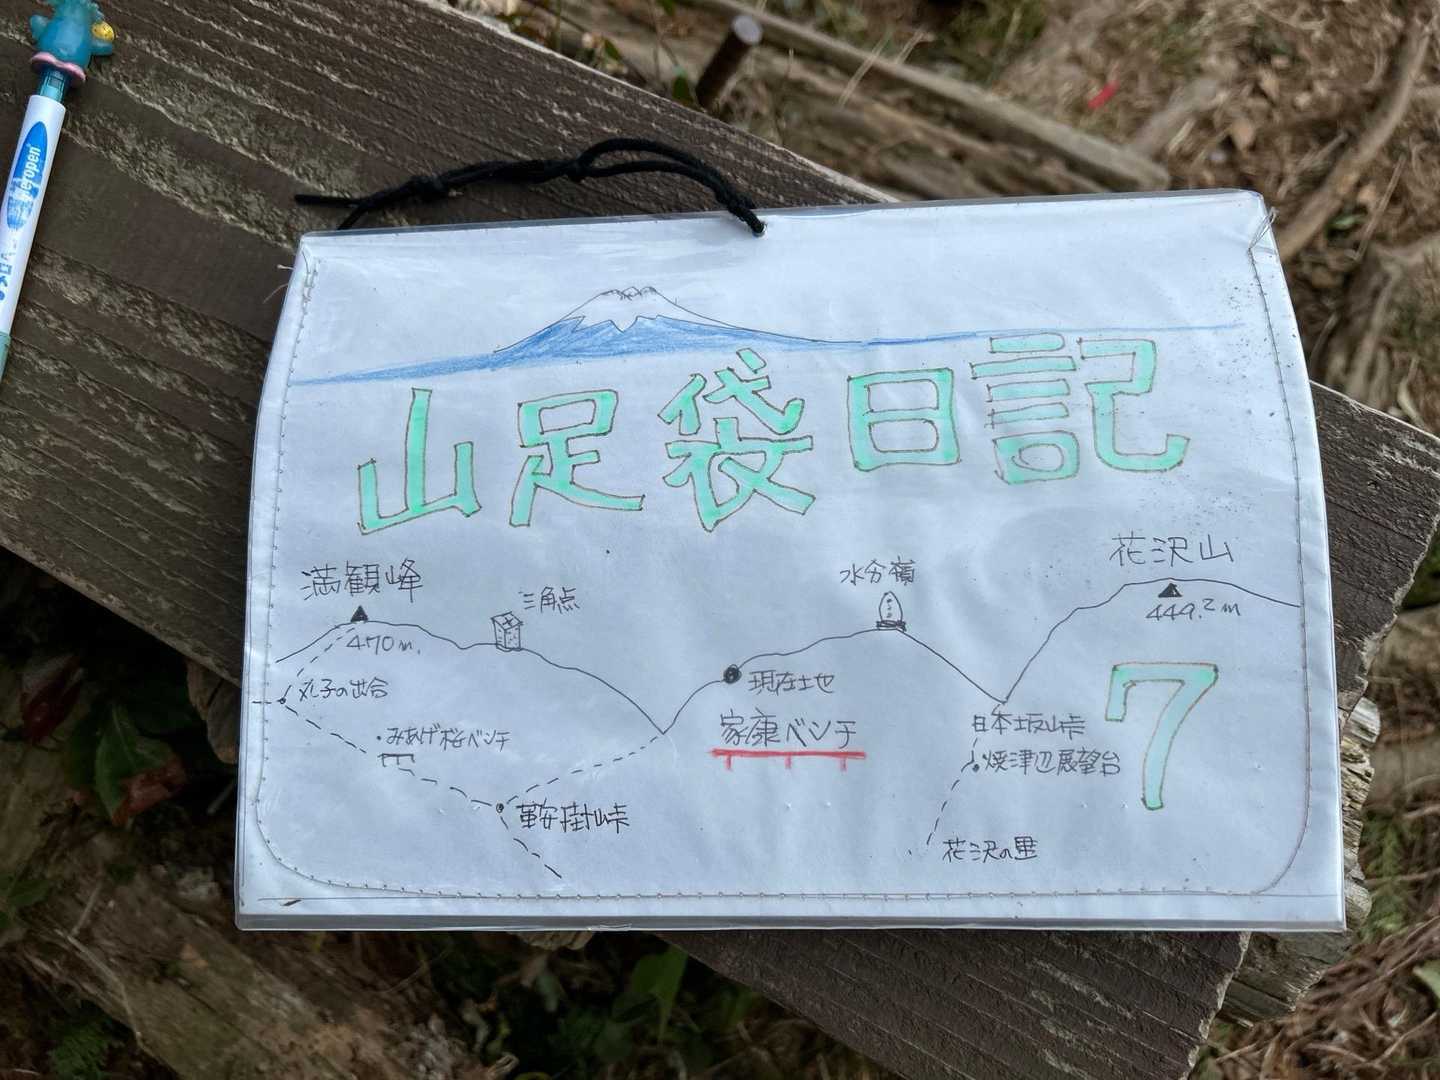 山足袋日記
満観峰
470m.
三角点
水分嶺
花沢山
449.2m
丸子の出合
みあげ桜ベンチ
現在地
家康ベンチ
日本坂峠
焼津辺展望台
鞍掛峠
花沢の里
7